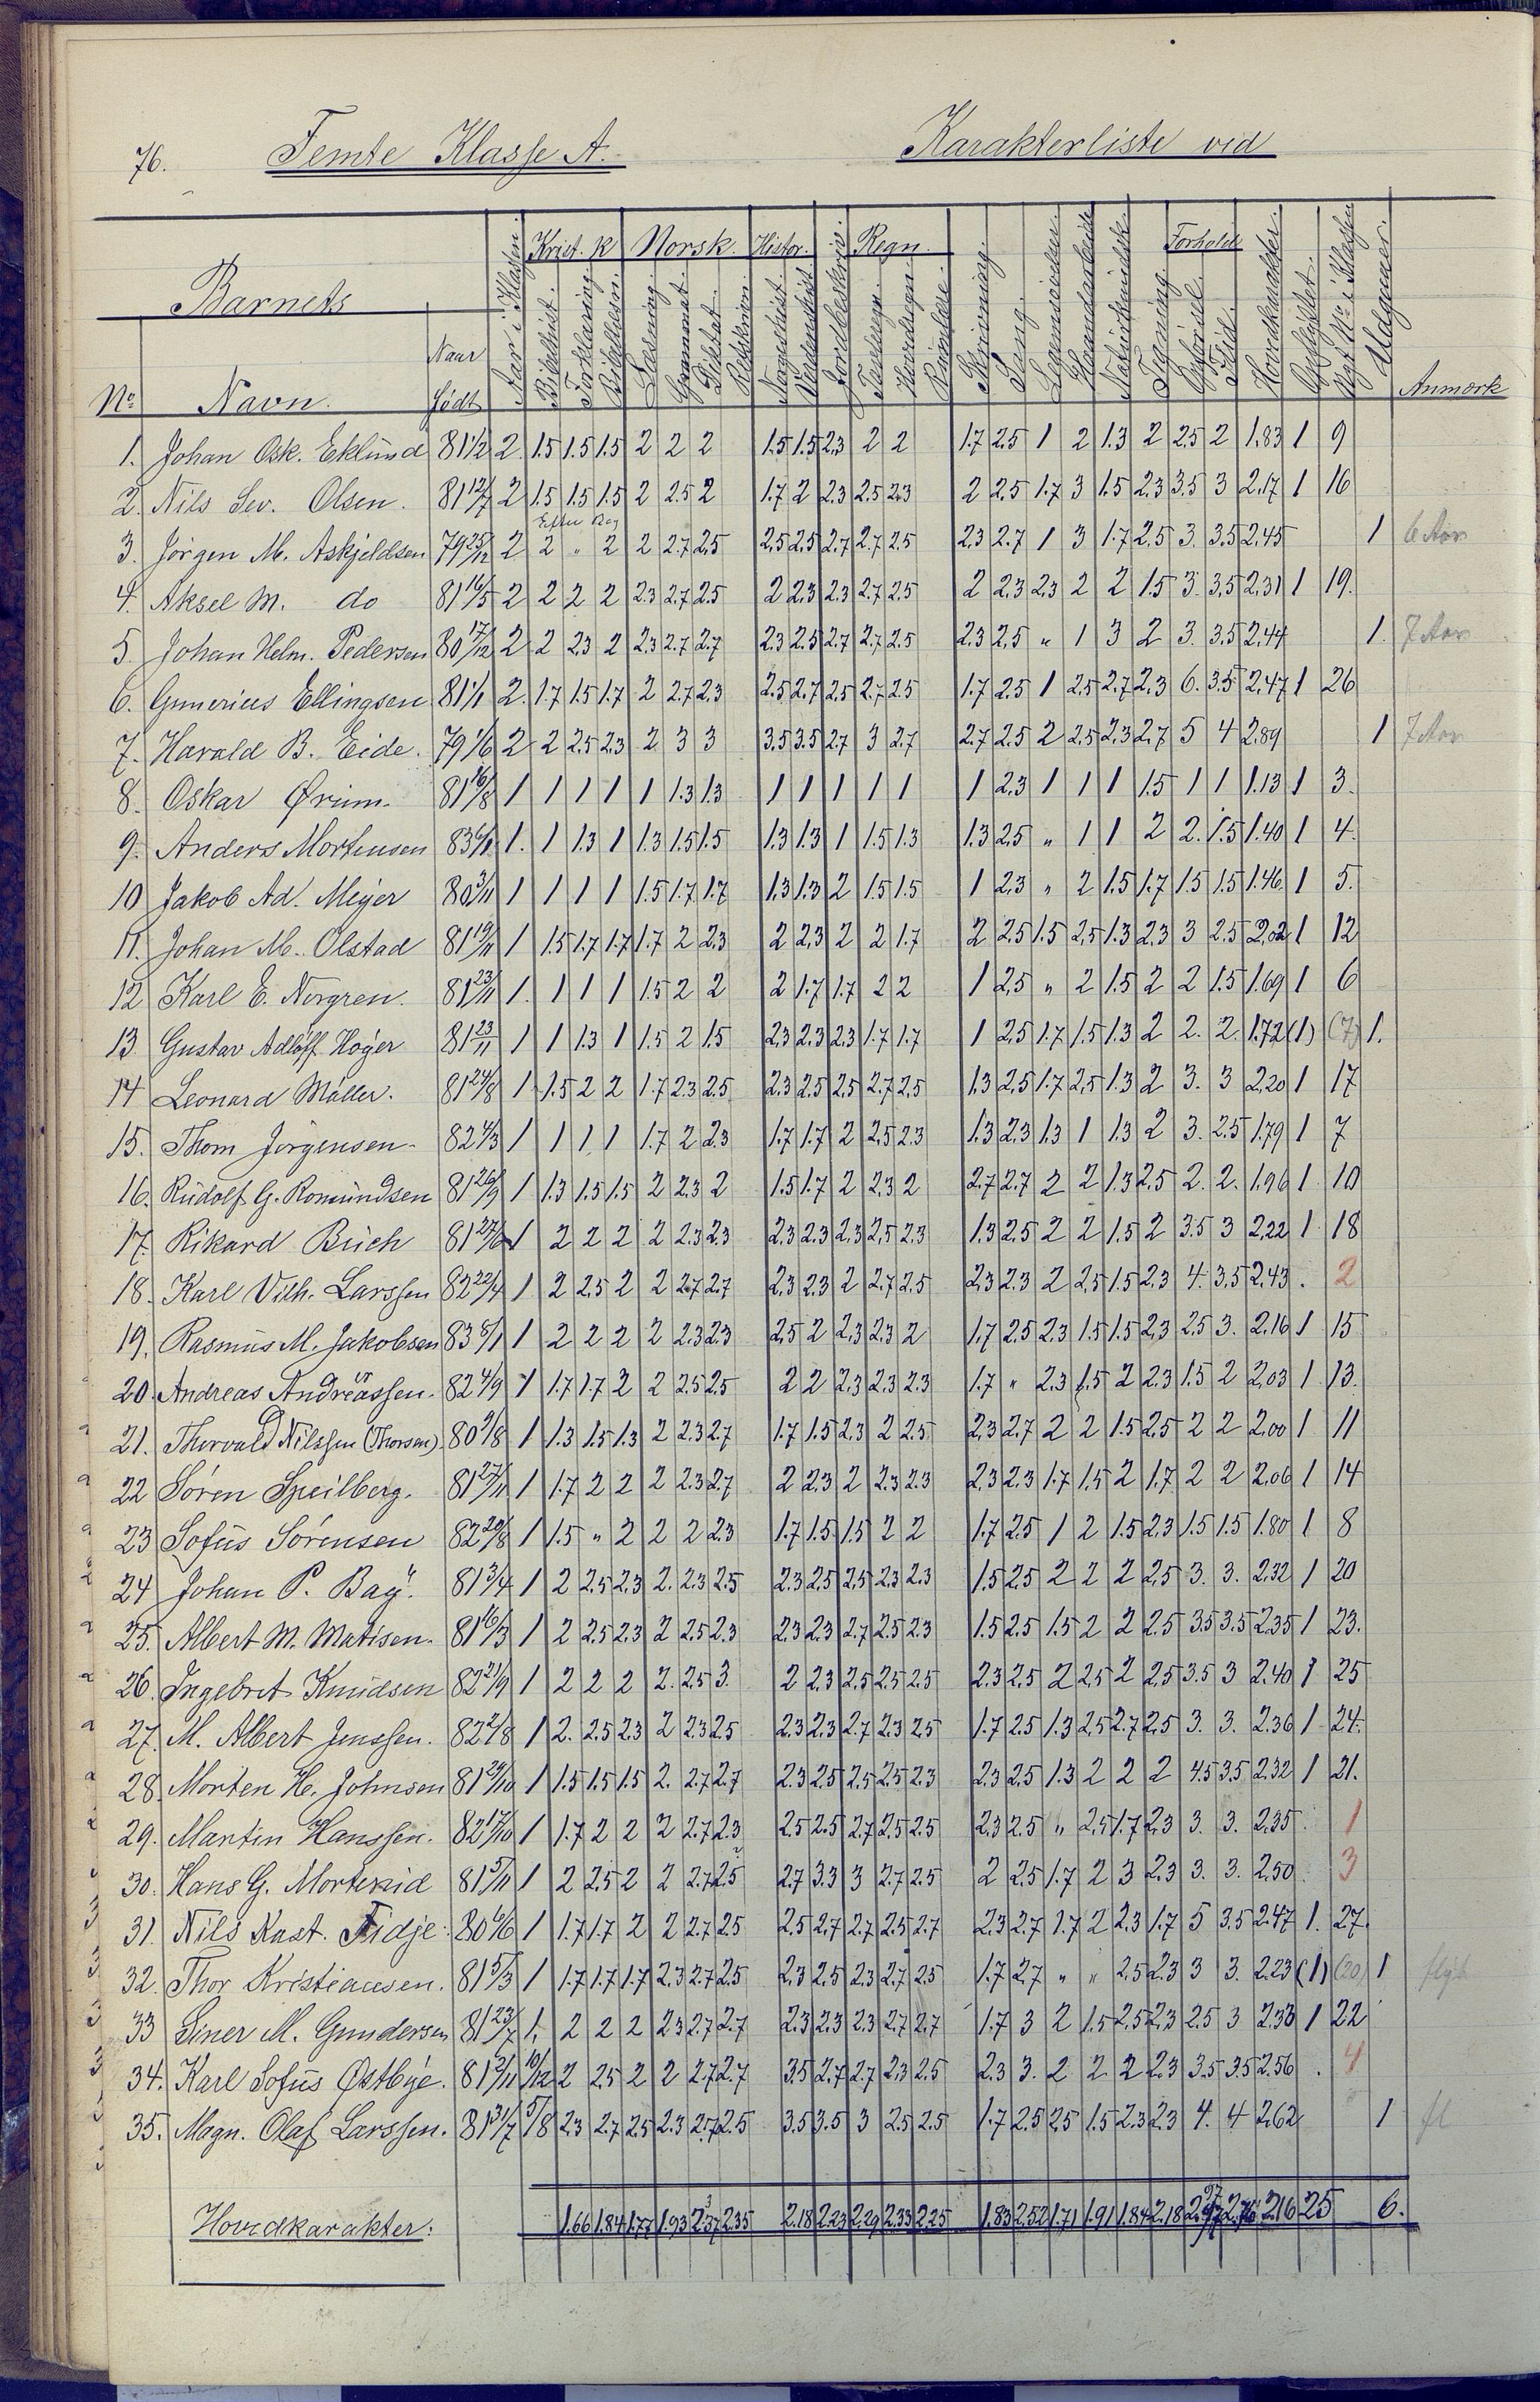 76. Femte Klasse A. Karakterliste vid
Barnets Krist. K Norsk. Histor. Regn. Forhold
Aar i Klassen Bibelhist. Forklaring Bibellæsn. Læsning Grammat. Diktat Retskrivn. Norgeshist. Verdenshist. Jordbeskriv. Tavleregn. Hovedregn. Skrivning Sang. Legemsøvelser Haandarbeide Naturkundsk. Tegning Opførsel Flid Hovedkarakter. Opflyttet. Udgaaet.
No Navn. Naar Født Anmærk
1. Johan Osk. Eklund 81 1/2 2 1.5 1.5 1.5 2 2 2 1.5 1.5 2.3 2 2 1.7 2.5 1 2 1.3 2 2.5 2 1.83 1 9
2. Nils Sev. Olsen. 81 12/7 2 1.5 1.5 1.5 2 2.5 2 1.7 2 2.3 2.5 2.3 2 2.5 1.7 3 1.5 2.3 3.5 3 2.17 1 16
3. Jörgen M. Askjeldsen 79 25/12 2 2 " 2 2 2.7 2.5 2.5 2.5 2.7 2.7 2.5 2.3 2.7 1 3 1.7 2.5 3. 3.5 2.45 1 6 Aar
4. Aksel M. do 81 16/5 2 2 2 2 2.3 2.7 2.5 2 2.3 2.3 2.7 2.5 2 2.3 2.3 2 2 1.5 3. 3.5 2.31 1 19.
5. Johan Helm. Pedersen 80 17/12 2 2 2.3 2 2.3 2.7 2.7 2.3 2.5 2.7 2.7 2.5 2.3 2.5 " 1 3 2 3. 3.5 2.44 1. 7 Aar
6. Gunerius Ellingsen 81 1/1 2. 1.7 1.5 1.7 2 2.7 2.3 2.5 2.7 2.5 2.7 2.5 1.7 2.5 1 2.5 2.7 2.3 6. 3.5 2.47 1 26
7. Harald B. Eide. 79 1/6 2 2 2.5 2.3 2 3 3 3.5 3.5 2.7 3 2.7 2.7 2.5 2 2.5 2.3 2.7 5 4 2.89 1 7 Aar
8. Oskar Ørum. 81 16/8 1 1 1 1 1 1.3 1.3 1 1 1 1 1 1 2.3 1 1 1 1.5 1 1 1.13 1 3.
9. Anders Mortensen 83 6/1 1. 1 1.3 1 1.3 1.5 1.5 1.3 1.3 1 1.5 1.3 1.3 2.5 " 1 1 2 2. 1.5 1.40 1 4.
10 Jakob Ad. Meyer 80 3/11 1 1 1 1 1.5 1.7 1.7 1.3 1.3 2 1.5 1.5 1 2.3 " 2 1.5 1.7 1.5 1.5 1.46. 1 5.
11. Johan M. Olstad 81 19/11 1 1.5 1.7 1.7 1.7 2 2.3 2 2.3 2 2 1.7 2 2.5 1.5 2.5 1.3 2.3 3 2.5 2.02 1 12
12 Karl E. Norgren. 81 23/11 1. 1 1 1 1.5 2 2 2 1.7 1.7 2 2 1 2.5 " 2 1.5 2 2 1.5 1.69 1 6
13 Gustav Adlöff Höyer 81 23/11 1 1 1.3 1 1.5 2 1.5 2.3 2.3 2.3 1.7 1.7 1 2.5 1.7 1.5 1.3 2 2. 2. 1.72 (1) (7) 1.
14 Leonard Möller. 81 24/8 1 1.5 2 2 1.7 2.3 2.5 2.3 2.5 2.5 2.7 2.5 1.3 2.5 1.7 2.5 1.3 2 3. 3 2.20 1 17
15. Thom Jörgensen 82 4/3 1 1 1 1 1.7 2 2.3 1.7 1.7 2 2.5 2.3 1.3 2.3 1.3 1 1.3 2 3. 2.5 1.79 1 7
16. Rudolf G. Romundsen 81 26/9 1 1.3 1.5 1.5 2 2.3 2 1.5 1.7 2 2.3 2 2.7 2.7 2 2 1.3 2.5 2. 2. 1.96 1 10
17. Rikard Buch 81 27/6 1 2 2 2 2 2.3 2.3 2.3 2.3 2.3 2.5 2.3 1.3 2.5 2 2 1.5 2 3.5 3 2.22 1 18
18. Karl Vilh. Larssen 82 22/4 1 2 2.5 2 2 2.7 2.7 2.3 2.3 2 2.7 2.5 2.3 2.3 2 2.5 1.5 2.3 4. 3.5 2.43 . 2
19. Rasmus M. Jakobsen 83 8/1 1 2 2 2 2 2.3 2.3 2.5 2 2.3 2.3 2 1.7 2.5 2.3 1.5 1.5 2.3 2.5 3. 2.16 1 15
20. Andreas Andreassen. 82 4/9 1 1.7 1.7 2 2 2.5 2.5 2 2 2.3 2.3 2.3 1.7 " 2.3 1.5 2 2.3 1.5 2 2.03 1 13.
21. Thorvald Nilssen (Thorsen) 80 9/8 1 1.3 1.5 1.3 2 2.3 2.7 1.7 1.5 2.3 2 2.5 2.3 2.7 2 2 1.5 2.5 2 2 2.00 1 11
22 Sören Speilberg. 81 27/11 1 1.7 2 2 2 2.3 2.7 2 2.3 2 2.3 2.3 2.3 2.3 1.7 1.5 2 1.7 2 2 2.06 1 14
23 Sofus Sörensen 82 20/8 1 1.5 " 2 2 2 2.3 1.7 1.5 1.5 2 2 1.7 2.5 1 2 1.5 2.3 1.5 1.5 1.80 1 8
24 Johan P. Bay. 81 3/4 1 2 2.5 2.3 2. 2.3 2.5 2.3 2.5 2.5 2.3 2.3 1.5 2.5 2 2 2 2.5 3. 3. 2.32 1 20
25. Albert M. Matisen. 81 16/3 1 2 2.5 2.3 2 2.5 2.3 2.3 2.3 2.7 2.5 2.3 1.5 2.5 1.5 2 2 2.5 3.5 3.5 2.35 1 23.
26. Ingebret Knudsen 82 21/9 1 2 2 2 2. 2.5 3. 2 2.3 2.5 2.5 2.5 2.3 2.5 2 2.5 2 2.5 3.5 3 2.40 1 25
27. M. Albert Jenssen. 82 2/8 1 2. 2.5 2.3 2 2.3 2.5 2.3 2.3 2.7 2.3 2.5 1.7 2.5 1.3 2.5 2.7 2.5 3. 3. 2.36 1 24.
28. Morten H. Johnsen 81 29/10 1 1.5 1.5 1.5 2. 2.7 2.7 2.3 2.5 2.5 2.5 2.3 2.3 2.5 1.3 2 2 2 4.5 3.5 2.32 1 21.
29. Martin Hanssen. 82 17/10 1 1.7 2 2 2 2.7 2.3 2.5 2.5 2.7 2.5 2.5 2.3 2.5 " 2.5 1.7 2.3 3. 3. 2.35 . 1
30. Hans G. Mortenid 81 5/11 1 2 2.5 2 2 2.7 2.5 2.7 3.3 3 2.7 2.5 2 2.5 1.7 2 3 2.3 3. 3. 2.50 . 3
31. Nils Kast. Fidje. 80 6/6 1 1.7 1.7 2 2 2.7 2.5 2.5 2.7 2.7 2.5 2.7 2.3 2.7 1.7 2 2.3 1.7 5 3.5 2.47 1. 27.
32. Thor Kristiansen. 81 5/3 1 1.7 1.7 1.7 2.3 2.7 2.5 2.3 2.5 2.3 2.7 2.5 1.7 2.7 " " 2.5 2.3 3 3. 2.23 (1) (20) 1
33 Einer M. Gundersen 81 23/7 1. 2 2 2 2.3 2.7 2.7 2.3 2.3 2.3 2.7 2.7 1.7 3 2 1.5 2.5 2.3 2.5 3 2.33 1 22
34. Karl Sofus Østbye. 81 2/11 10/12 2 2.5 2 2 2.7 2.7 3.5 2.7 2.7 2.3 2.5 2.3 3. 2 2 2 2.3 3.5 3.5 2.56 . 4
35. Magn. Olaf Larssen. 81 31/7 5/8 2.3 2.7 2.5 2.3 2.7 2.5 3.5 3.5 3 2.5 2.5 1.7 2.5 2.5 1.5 2.3 2.3 4. 4 2.62 1 fl
Hovedkarakter: 1.66 1.84 1.77 1.93 2.37 2.35 2.18 2.23 2.29 2.33 2.25 1.83 2.52 1.71 1.91 1.84 2.18 2.16 25 6.